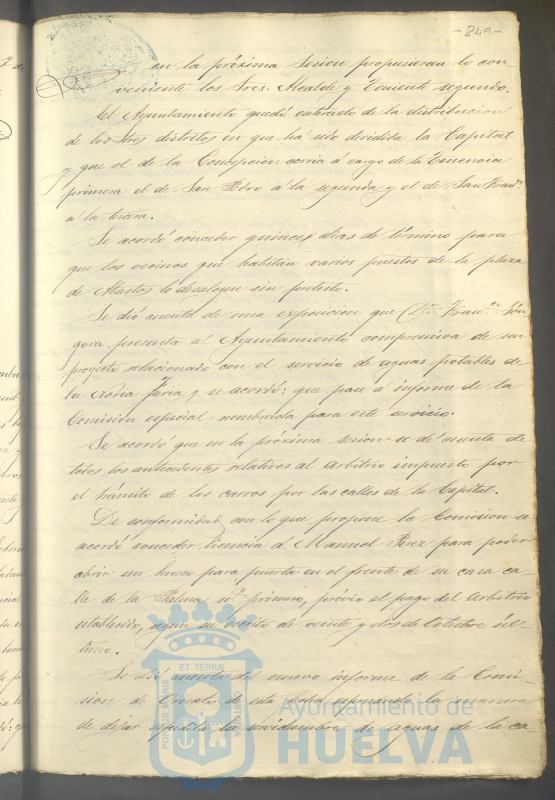 -249-
en la próxima Sesion propusieran lo con
veniente los Sres. Alcalde y Teniente segundo.
El Ayuntamiento quedó enterado de la distribucion
de los tres distritos en que ha sido dividida la Capital
y que el de la Concepcion corria á cargo de la Tenencia
primera el de San Pedro á la segunda y el de San Franco
á la tercera.
Se acordó conceder quince dias de término para
que los vecinos que habitan varios puestos de la plaza
de Abastos lo desaloguen sin pretesto.
Se dió cuenta de una exposicion que Dn. Franco. Gón
gora presenta al Ayuntamiento comprensiva de un
proyecto relacionado con el servicio de aguas potables de
la Noria y se acordó: que pase á informe de la
Comisión especial nombrada para este servicio.
Se acordó que en la próxima sesion se dé cuenta de
todos los antecedentes relativos al arbitrio impuesto por
el tránsito de los carros por las calles de la Capital.
De conformidad con lo que propone la Comision se
acordó conceder licencia á Manuel Perez para poder
abrir un hueco para puerta en el frente de su casa ca-
lle de la Palma no primero, prévio el pago del arbitrio
establecido, segun su edicto de veinte y dos de Octubre úl-
timo.
Se dió cuenta del nuevo informe de la Comi-
sion de Ornato de esta
de dejar la servidumbre de aguas de la ca
ET TERRÆ
PORTUS MARIS
Ayuntamiento de
HUELVA